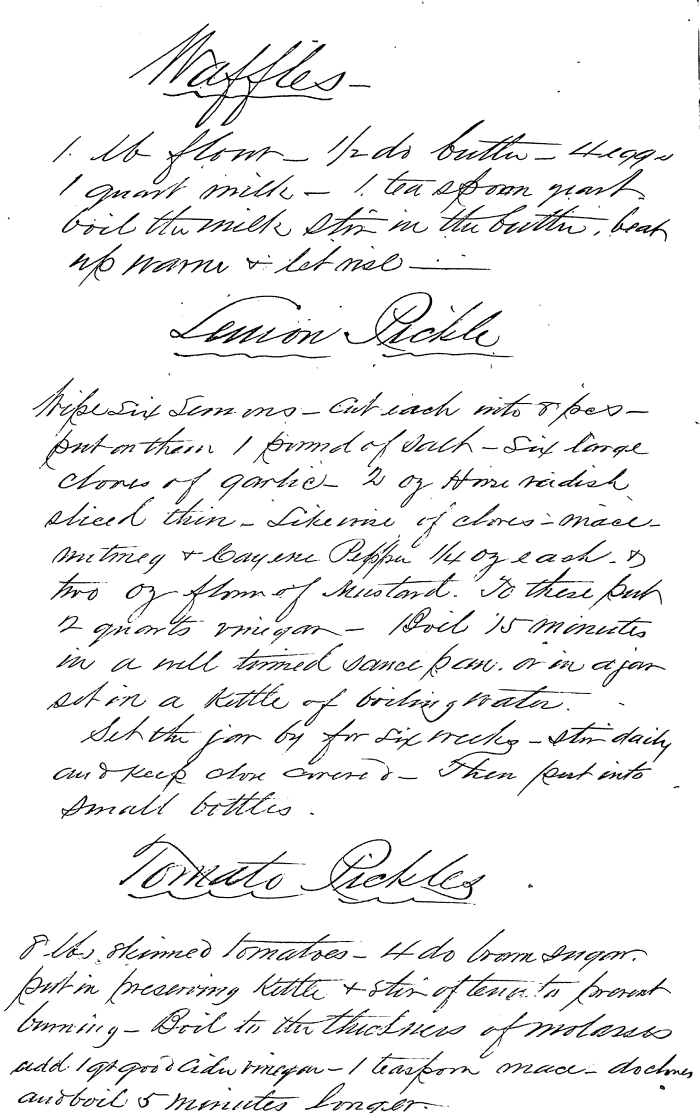 Waffles —
1. lb flour — 1/2 do butter — 4 eggs
1 quart milk — 1. teaspoon yeast.
boil the milk stir in the butter, beat
up warm & let rise ——
Lemon Pickle
Wipe six Lemons — cut each into 8 pcs —
put on them 1 pound of salt — Six large
cloves of garlic — 2 oz Horse radish
sliced thin — Likewise of cloves — mace —
nutmeg & Cayene Pepper 1/4 oz each. &
two oz flour of Mustard. To these put
2 quarts vinegar — Boil 15 minutes
in a well tinned sauce pan. or in a jar
set in a Kettle of boiling water.
Set the jar by for six weeks — stir daily
and keep close covered — Then put into
small bottles.
Tomato Pickles
8 lbs. skinned tomatoes — 4 do brown sugar.
put in preserving Kettle & stir often to prevent
burning — Boil to the thickness of molasses
add 1 qt good cider vinegar — 1 teaspoon mace — do cloves
and boil 5 minutes longer.